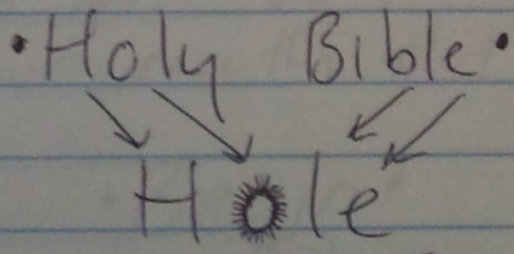 • Holy Bible •
Hole